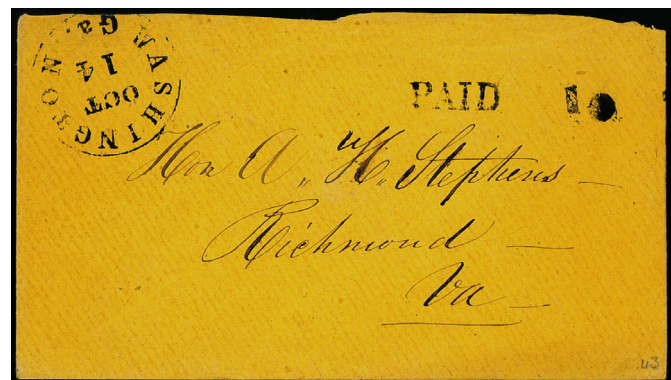 WASHINGTON
Ga.
14
OCT
PAID 10
Hon A, H, Stephens
Richmond
Va
43